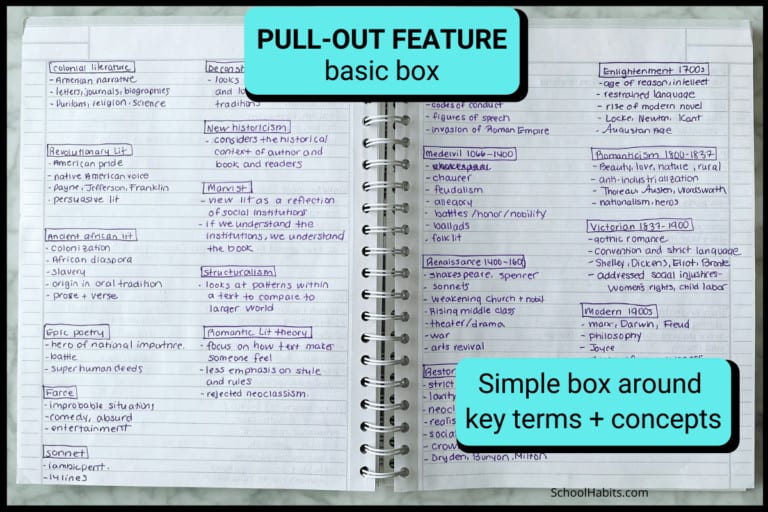 PULL-OUT FEATURE
basic box
Colonial literature
- American narrative
- letters, journals, biographies
- Puritans, religion. science
Revolutionary Lit
- American pride
- native American voice
- payne, Jefferson, Franklin
- persuasive lit
Ancient african lit
- colonization
- African diaspora
- slavery
- origin in oral tradition
- prose + verse
Epic poetry
- hero of national importnce.
- battle
- super human deeds
Farce
- improbable situations
- comedy, absurd
- entertainment
Sonnet
- iambic pent.
- 14 lines
- looks
tradition
New historicism
- considers the historical
context of author and
book and readers
Marxist
- view lit as a reflection
of social institutions
- if we understand the
institutions, we understand
the book
Structuralism
- looks at patterns within
a text to compare to
larger world
Romantic Lit theory
- focus on how text makes
someone feel
- less emphasis on style
and rules
- rejected neoclassism.
- codes of conduct
- figures of speech
- invasion of Roman Empire
Medeivil 1066-1400
- chaurer
- feudalism
- allegory
- battles /honor/nobility
- ballads
- folk lit
Renaissance 1400-160
- shakespeare. spencer
- sonnets
- weakening church + nobil
- Rising middle class
- theater/drama
- war
- arts revival
Restor
- strict
- neocl
- realis
- social
- crow
- Dryden, Bunyon, Milton
Enlightenment 1700s
- age of reason, intellect
- restrained language
- rise of modern novel
- Locke, Newton, Kant
- Augustan Age
Romanticism 1800-1837
- Beauty, love, nature, rural
- anti-industrialization
- Thoreau, Austen, Wordsworth
- nationalism, heros
Victorian 1837-1900
- gothic romance
- convention and strict language
- Shelley, Dickens, Eliot, Bronte
- addressed social injustices-
women's rights, child labor
Modern 1900s
- marx, Darwin, Freud
- philosophy
- Joyce
Simple box around
key terms + concepts
SchoolHabits.com